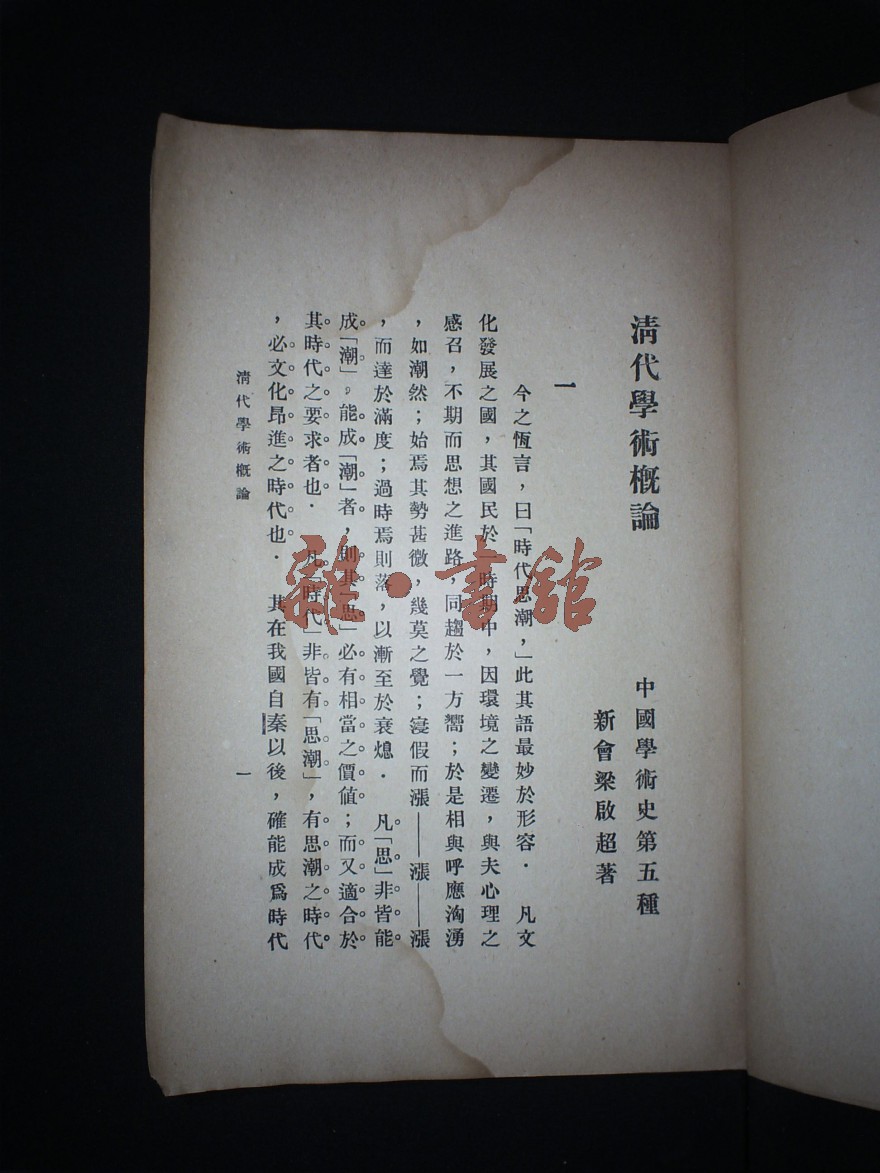 清代學術概論
中國學術史第五種
新會梁啟超著
一
今之恆言，曰「時代思潮，」此其語最妙於形容． 凡文
化發展之國，其國民於一時期中，因環境之變遷，與夫心理之
感召，不期而思想之進路，同趨於一方嚮；於是相與呼應洶湧
，如潮然；始焉其勢甚微，幾莫之覺；寖假而漲——漲——漲
，而達於滿度；過時焉則落，以漸至於衰熄． 凡「思」非皆能
成「潮」，能成「潮」者，則其「思」必有相當之價値；而又適合於
其時代之要求者也． 凡「時代」非皆有「思潮」，有思潮之時代
，必文化昂進之時代也． 其在我國自秦以後，確能成爲時代
清代學術概論
一
雜·書館